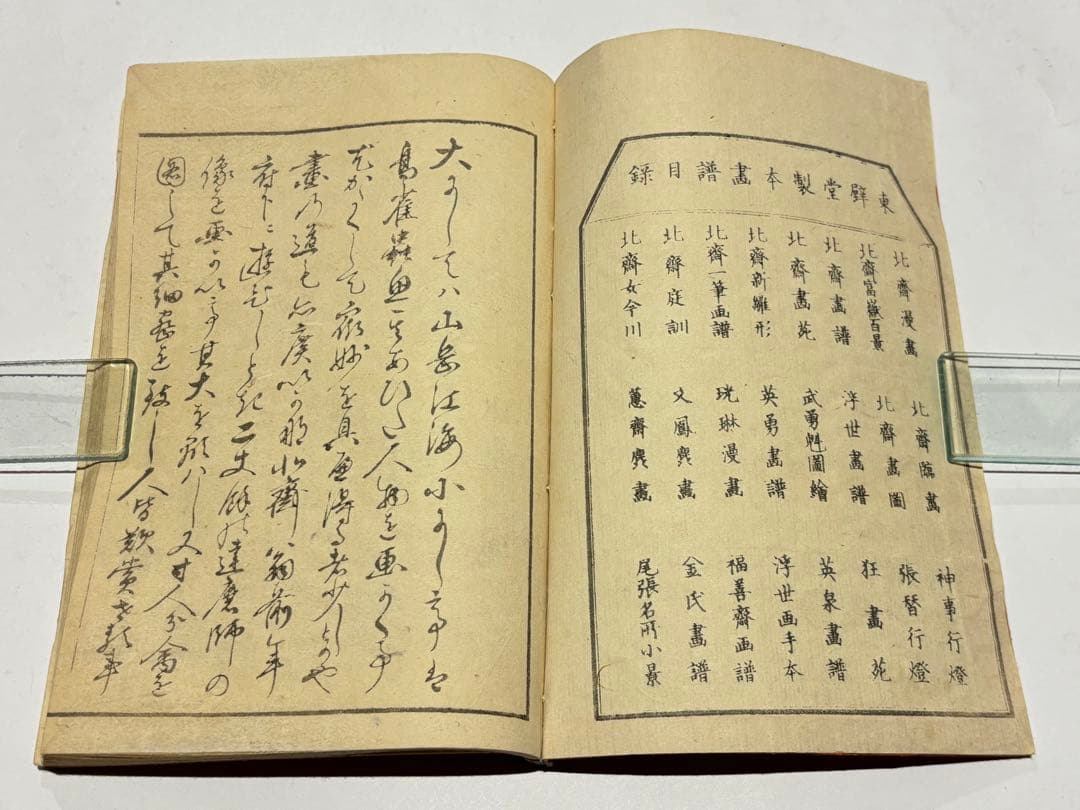 東壁堂製本畫譜目錄
北齋漫畫
北齋富嶽百景
北齋畫譜
北齋畫苑
北齋新雛形
北齋一筆画譜
北齋庭訓
北齋女今川
北齋臨畫
北齋畫圖
浮世畫譜
武勇魁圖繪
英勇畫譜
珖琳漫畫
文鳳麁畫
蕙齋麁畫
神事行燈
張替行燈
狂畫苑
英泉畫譜
浮世画手本
福善齋画譜
金氏畫譜
尾張名所小景
大にしてハ山岳江海小にし亭は
鳥雀蟲魚其あひた人物を画かく事
妙を具へ得る者少しとかや
畫乃道も亦廣いかな北齋翁前年
府下に遊ひしとき二丈餘の達磨師の
像を画かいて其大を顕ハし又寸人分禽を
圖して其細密を致し人皆歎賞せさる事